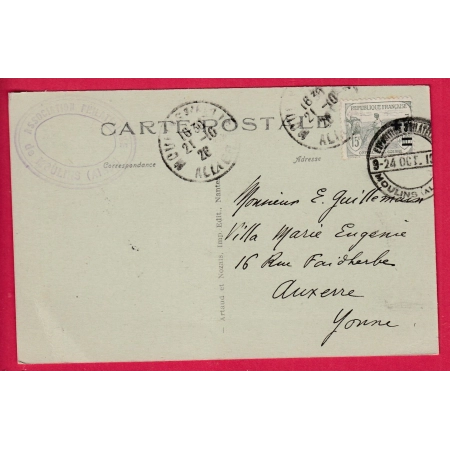 CARTE POSTALE
Correspondance
Adresse
MOULINS
16 30
21 -10
26
ALLIER
16 30
21 -10
26
ALLIER
REPUBLIQUE FRANÇAISE
15
9-24 OCT. 1
MOULINS (AL
Monsieur E. Guillemain
Villa Marie Eugénie
16 Rue Faidherbe
Auxerre
Yonne
Artaud et Nozais, Imp.-Edit., Nantes